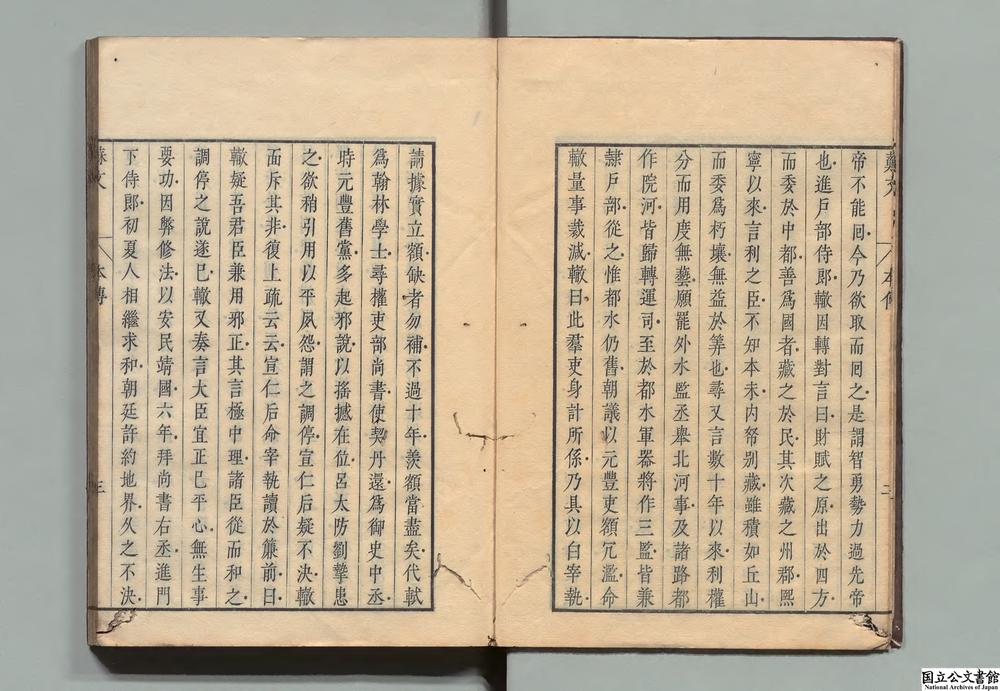 帝不能囘今乃欲取而囘之是謂智勇勢力過先帝
也進戶部侍郎轍因轉對言曰財賦之原出於四方
而委於中都善爲國者藏之於民其次藏之州郡熙
寧以來言利之臣不知本末內帑别藏雖積如丘山
而委爲朽壤無益於筭也尋又言數十年以來利權
分而用度無藝願罷外水監丞舉北河事及諸路都
作院河皆歸轉運司至於都水軍器將作三監皆兼
隸戶部從之惟都水仍舊朝議以元豐吏額冗濫命
轍量事裁減轍曰此羣吏身計所係乃具以白宰執
本傳
請據實立額缺者勿補不過十年羨額當盡矣代軾
爲翰林學士尋權吏部尚書使契丹還爲御史中丞
時元豐舊黨多起邪說以搖撼在位呂太防劉摯患
之欲稍引用以平夙怨謂之調停宣仁后疑不決轍
面斥其非復上疏云云宣仁后命宰執讀於簾前曰
轍疑吾君臣兼用邪正其言極中理諸臣從而和之
調停之說遂已轍又奏言大臣宜正已平心無生事
要功因弊修法以安民靖國六年拜尚書右丞進門
下侍郎初夏人相繼求和朝廷許約地界久之不決
蘇文 本傳 三
国立公文書館
National Archives of Japan